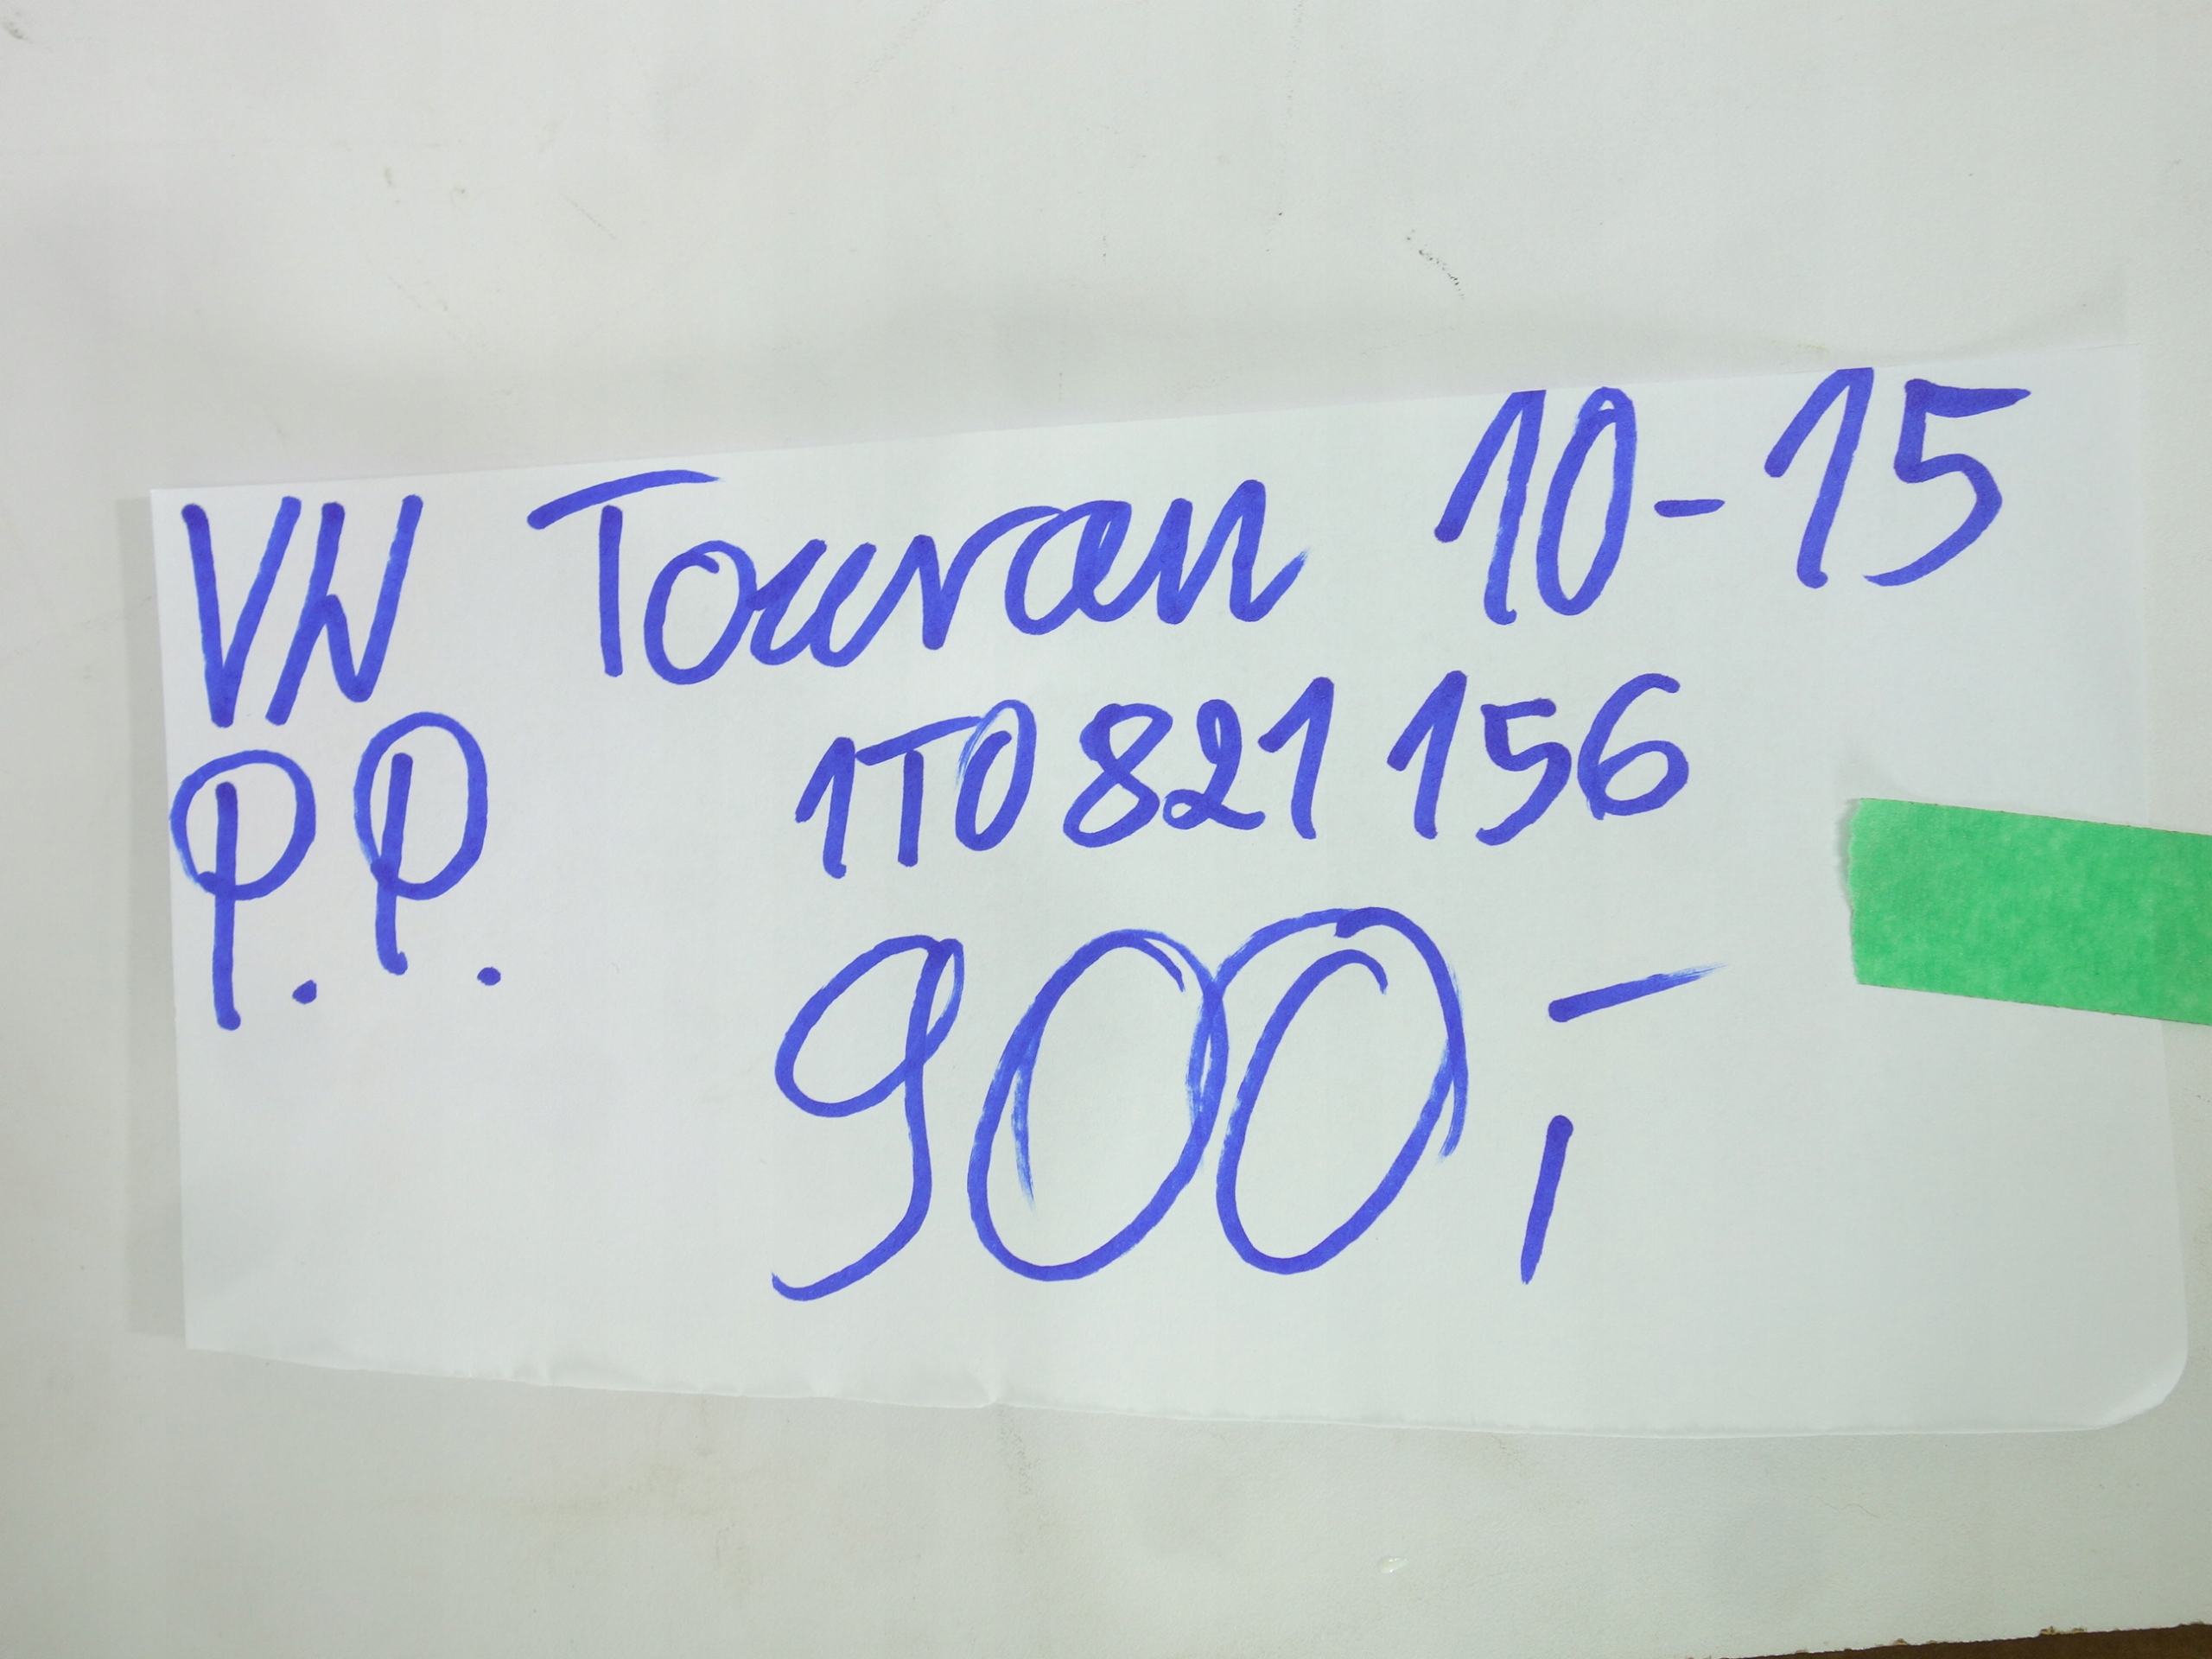 VW Touran 10-15
P.P. 1T0 821 156
900,-